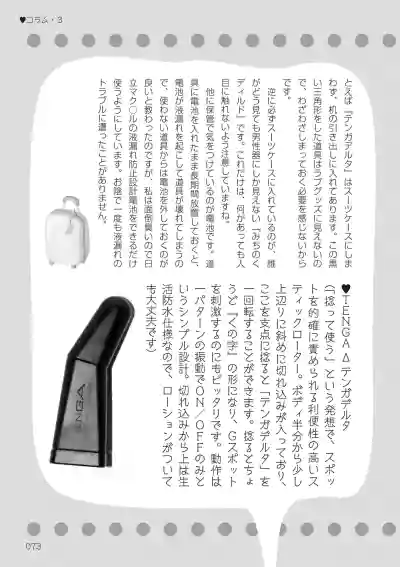 ♥コラム・3
とえば『テンガデルタ』はスーツケースにしま
わず、机の引き出しに入れてあります。この黒
い三角形をした道具はラブグッズに見えないの
で、わざわざしまっておく必要を感じないから
です。
逆に必ずスーツケースに入れているのが、誰
がどう見ても男性器にしか見えない『みちのく
ディルド』です。これだけは、何があっても人
目に触れないよう注意していますね。
他に保管で気をつけているのが電池です。道
具に電池を入れたまま長期間放置しておくと、
電池が液漏れを起こして道具が壊れてしまうの
で、使わない道具からは電池を外しておくのが
良いと教わったのですが、私は面倒臭いので日
立マク○ルの液漏れ防止設計電池をできるだけ
使うようにしています。お陰で一度も液漏れの
トラブルに遭ったことがありません。
♥TENGA Δ テンガデルタ
(「捻って使う」という発想で、スポッ
トを的確に責められる利便性の高いス
ティックローター。ボディ半分から少し
上辺りに斜めに切れ込みが入っており、
ここを支点に捻ると「テンガデルタ」を
一回転することができます。捻るとちょ
うど「くの字」の形になり、Gスポット
を刺激するのにもピッタリです。動作は
一パターンの振動でON/OFFのみと
いうシンプル設計。切れ込みから上は生
活防水仕様なので、ローションがついて
も大丈夫です)
TENGA
073